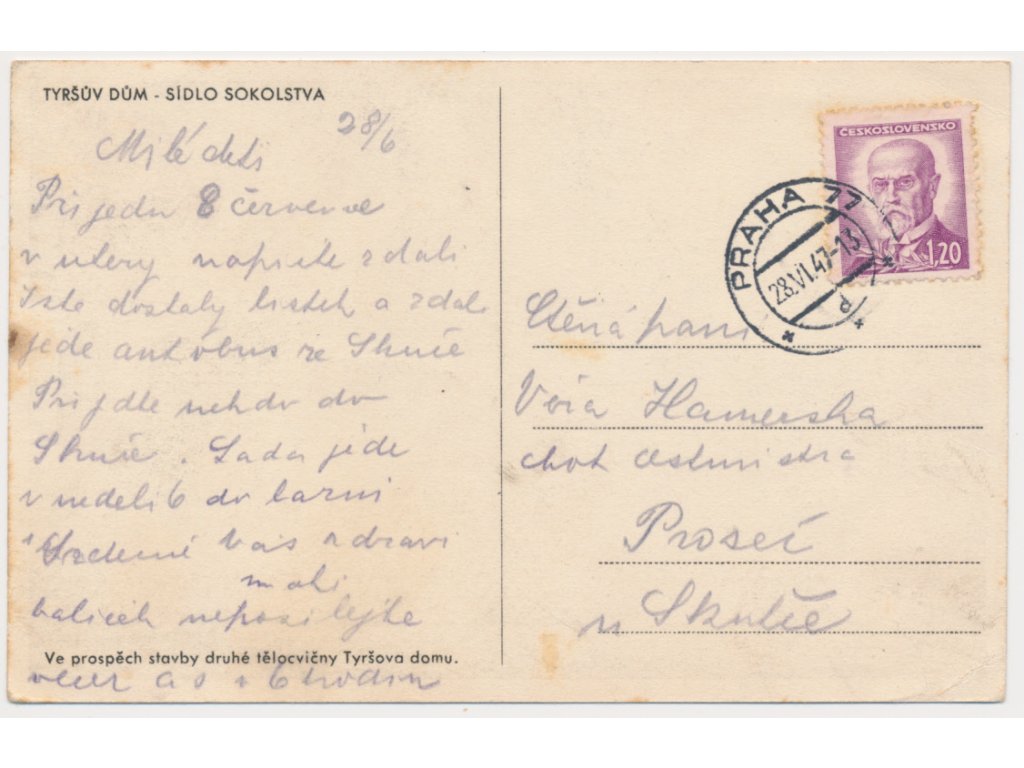 TYRŠŮV DŮM - SÍDLO SOKOLSTVA
28/6
Milé deti
Prijedu 8 července
v utery napiste zdali
Iste dostaly listek a zdal
jede autobus ze Skuče
Prijdte nekdo do
Skuče. Lada jede
v nedeli 6 do lazni
Srdečně Vás zdravi
balicek neposilejte
Ve prospěch stavby druhé tělocvičny Tyršova domu.
vecer as v 6 hodin
ČESKOSLOVENSKO
1,20
PRAHA 77
28.VI.47-13
Ctěná paní
Věra Hamerska
chot
Proseč
u Skutče